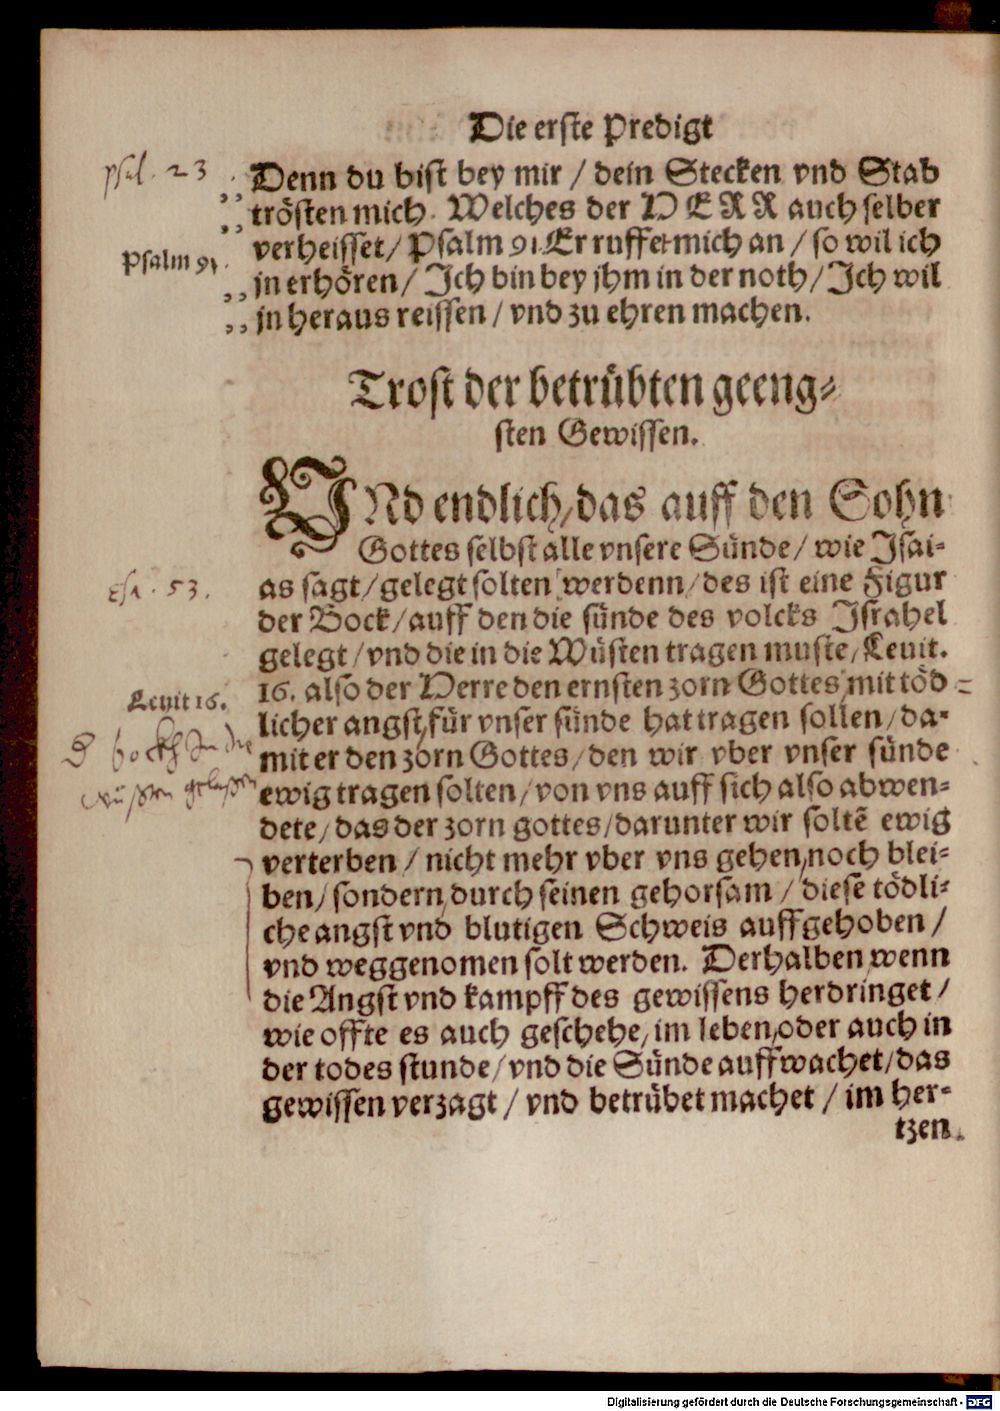 Die erste Predigt
psal. 23
Denn du bist bey mir / dein Stecken vnd Stab
trösten mich. Welches der HERR auch selber
Psalm 91.
verheisset / Psalm 91. Er ruffet mich an / so wil ich
jn erhören / Ich bin bey jhm in der noth / Ich wil
jn heraus reissen / vnd zu ehren machen.
Trost der betrübten geeng⸗
sten Gewissen.
VNd endlich / das auff den Sohn
Gottes selbst alle vnsere Sünde / wie Isai⸗
Esa. 53.
as sagt / gelegt solten werdenn / des ist eine Figur
der Bock / auff den die sünde des volcks Israhel
gelegt / vnd die in die Wüsten tragen muste / Leuit.
Leuit 16.
16. also der Herre den ernsten zorn Gottes mit töd⸗
licher angst / für vnser sünde hat tragen sollen / da⸗
mit er den zorn Gottes / den wir vber vnser sünde
bockh In die
ewig tragen solten / von vns auff sich also abwen⸗
wüsten gelassen
dete / das der zorn gottes / darunter wir soltē ewig
verterben / nicht mehr vber vns gehen / noch blei⸗
ben / sondern durch seinen gehorsam / diese tödli⸗
che angst vnd blutigen Schweis auffgehoben /
vnd weggenomen solt werden. Derhalben wenn
die Angst vnd kampff des gewissens herdringet /
wie offte es auch geschehe / im leben / oder auch in
der todes stunde / vnd die Sünde auffwachet / das
gewissen verzagt / vnd betrübet machet / im her⸗
tzen
Digitalisierung gefördert durch die Deutsche Forschungsgemeinschaft - DFG